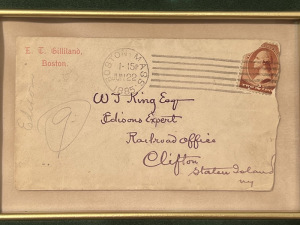 E. T. Gilliland,
Boston.
BOSTON, MASS.
1-15P
JUN 22
1885
W J King Esq
Edisons Expert
Railroad Office
Clifton
Staten Island
NY